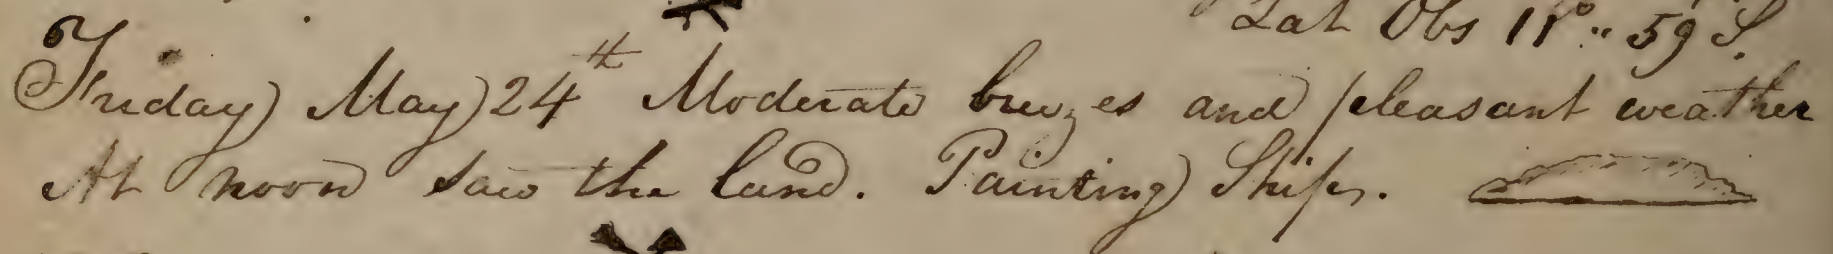 Lat Obs 11°" 59 S.
Friday May 24th Moderate breezes and pleasant weather
At noon saw the land. Painting Ship.